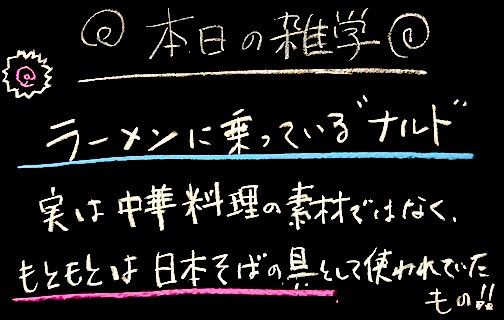 本日の雑学
ラーメンに乗っている"ナルト"
実は中華料理の素材ではなく、
もともとは日本そばの具として使われていた
もの!!